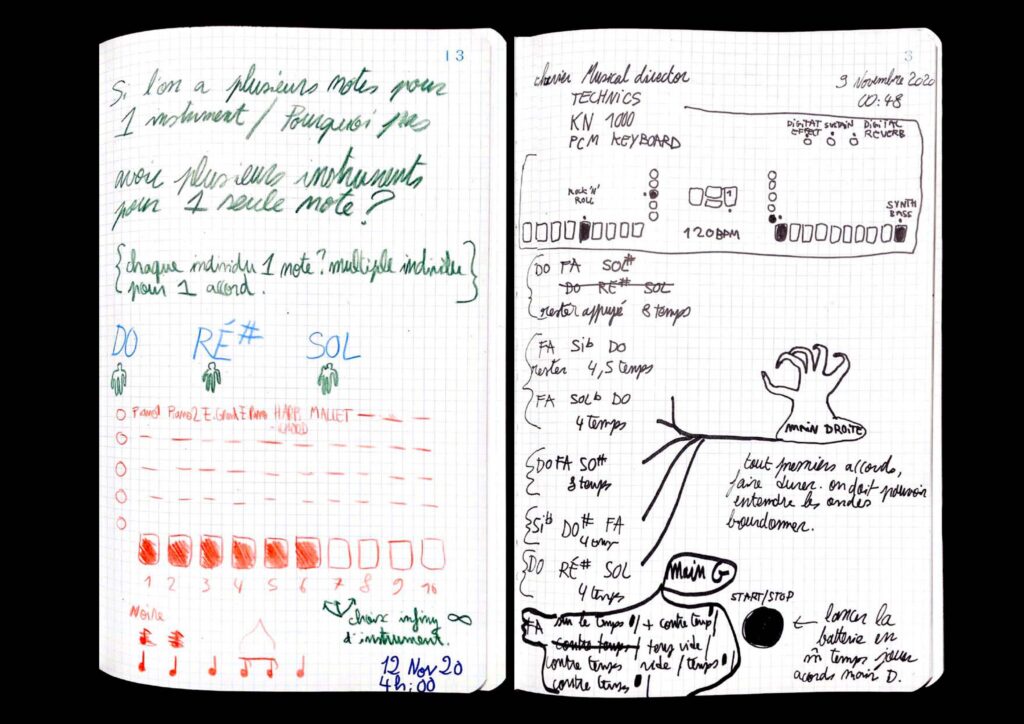 13
Si l'on a plusieurs notes pour
1 instrument / Pourquoi pas
avoir plusieurs instruments
pour 1 seule note ?
{chaque individu 1 note ? multiple individu
pour 1 accord.}
DO RÉ# SOL
Piano1 Piano2 E.Grand E Piano HARP. MALLET
1 2 3 4 5 6 7 8 9 10
Noire
choix infiny ∞
d'instrument.
12 Nov 20
4h:00
3
clavier Musical director
9 Novembre 2020
00:48
TECHNICS
KN 1000
PCM KEYBOARD
DIGITAL EFFECT SUSTAIN DIGITAL REVERB
ROCK 'N' ROLL
1
120 BPM
SYNTH BASS
DO FA SOL#
DO RÉ# SOL
rester appuyé 8 temps
FA Sib DO
rester 4,5 temps
FA SOLb DO
4 temps
MAIN DROITE
DO FA SOL#
3 temps
tout premiers accords,
faire durer. on doit pouvoir
entendre les ondes
bourdonner.
Sib DO# FA
DO RÉ# SOL
4 temps
Main G
START/STOP
FA sur le temps / + contre temps /
contre temps / temps vide /
contre temps vide / temps /
contre temps
← lancer la
batterie en
m̂ temps jouer
acords main D.